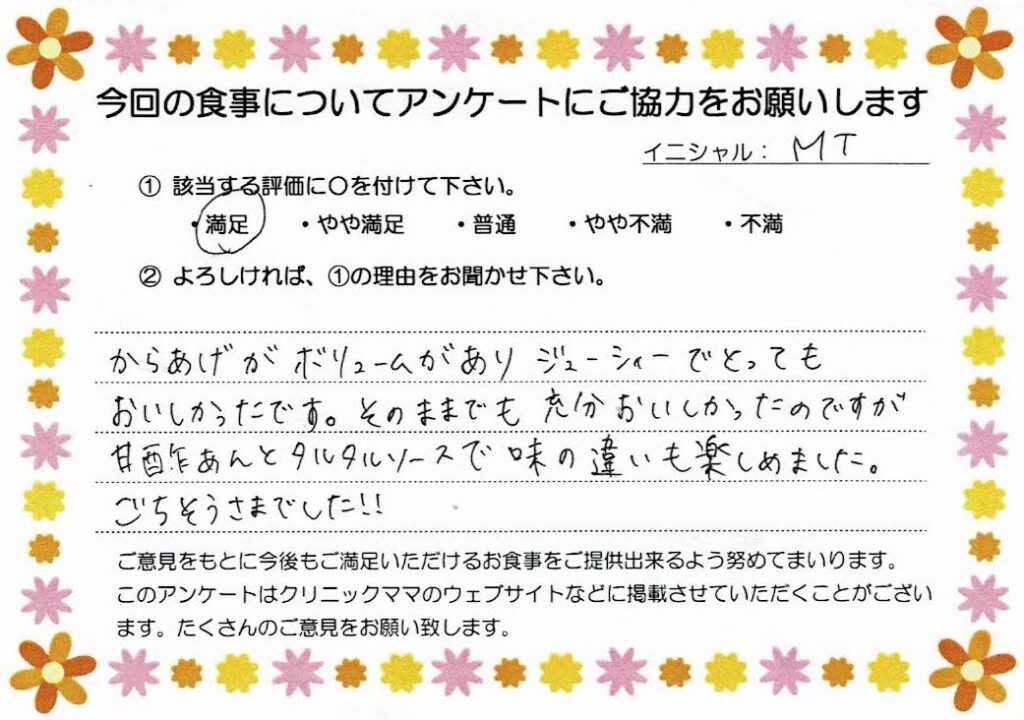 今回の食事についてアンケートにご協力をお願いします
イニシャル： MT
① 該当する評価に〇を付けて下さい。
・満足 ・やや満足 ・普通 ・やや不満 ・不満
② よろしければ、①の理由をお聞かせ下さい。
からあげがボリュームがありジューシィーでとっても
おいしかったです。そのままでも充分おいしかったのですが
甘酢あんとタルタルソースで味の違いも楽しめました。
ごちそうさまでした!!
ご意見をもとに今後もご満足いただけるお食事をご提供出来るよう努めてまいります。
このアンケートはクリニックママのウェブサイトなどに掲載させていただくことがござい
ます。たくさんのご意見をお願い致します。